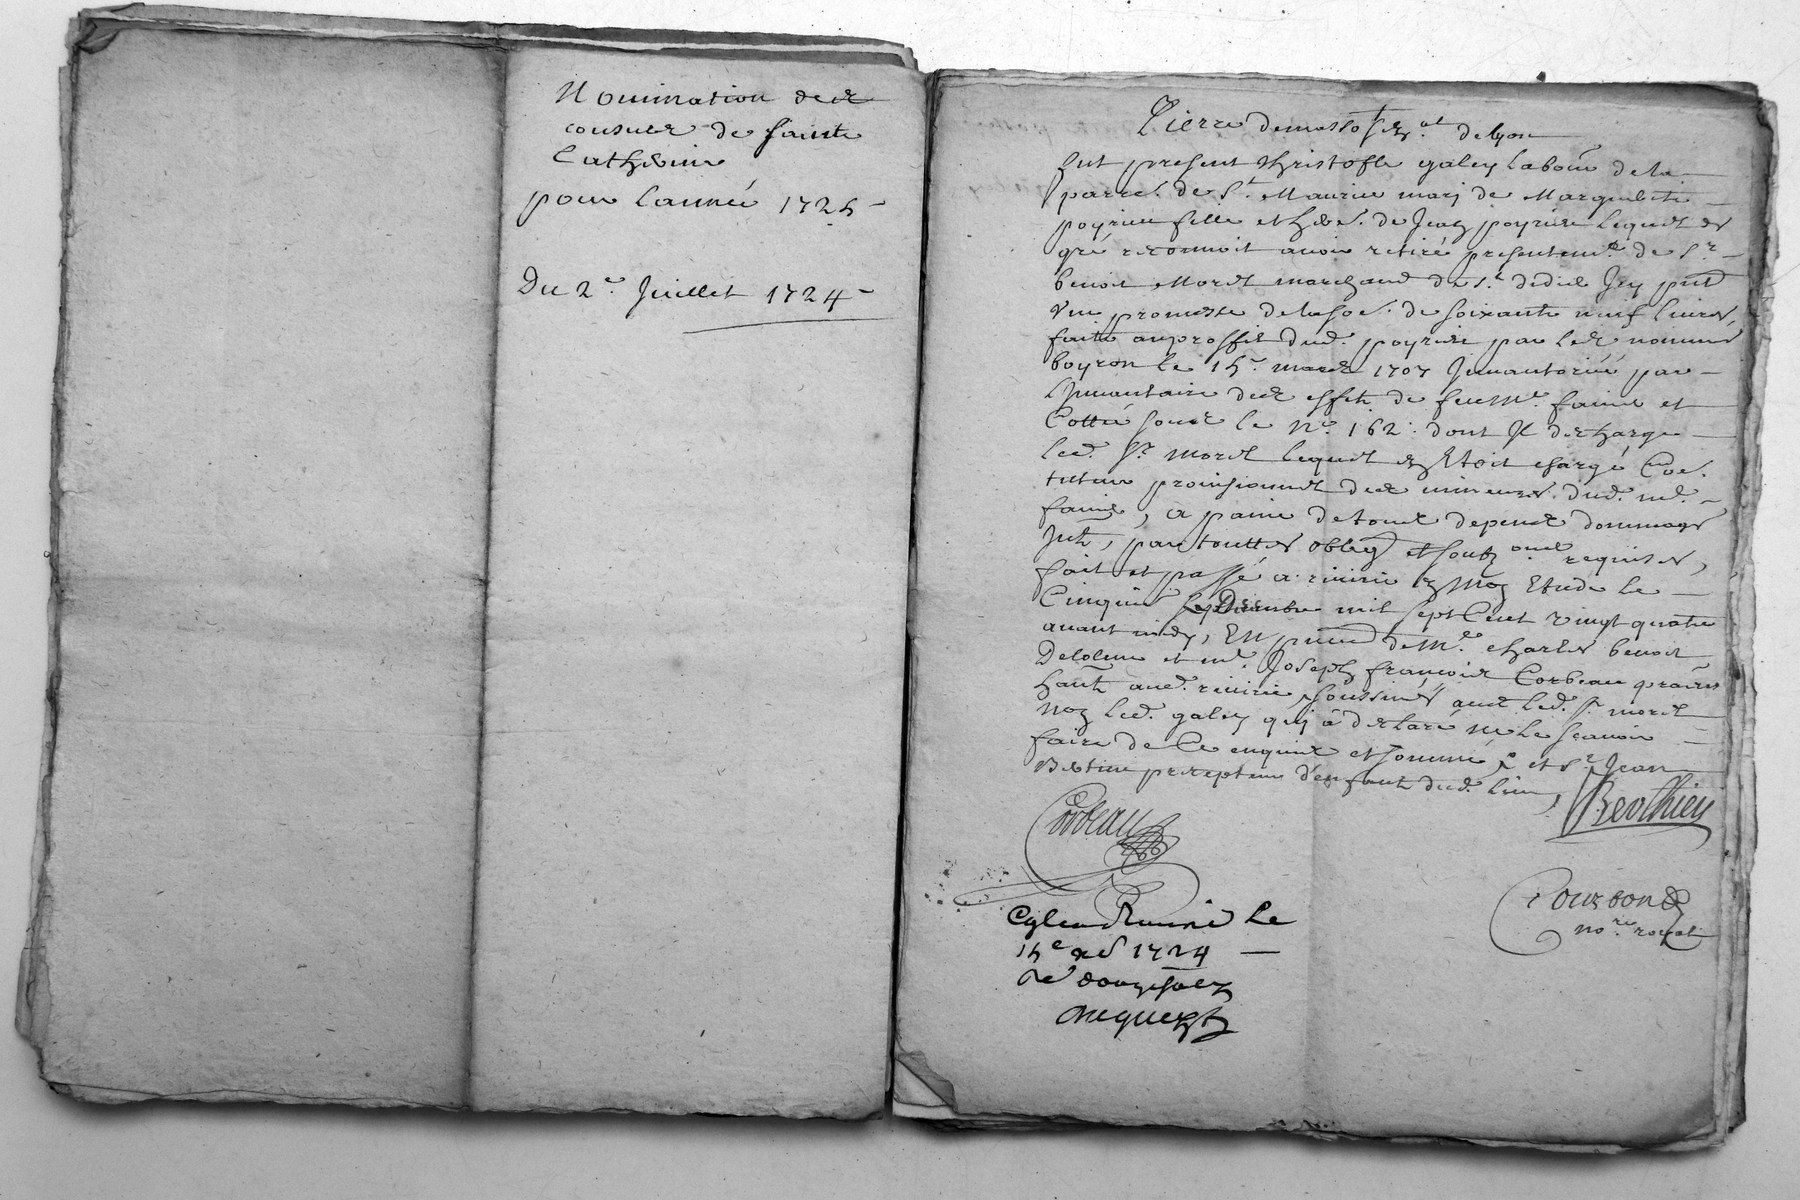 Nomination des
consuls de Sainte
Catherine
pour lannée 1725
Du 2e. Juillet 1724
Pierre demasso
fut present Christofle galey labour. de la
parre. de St. Maurice mary de Marguerite
poyrieu fille et here. de Jean poyrieu lequel de
gré reconnoit avoir retiré presentemt. de Sr.
benoit Morel marchand de St. didier Icy prnt
une promesse de la so. de soixante neuf livres
faite au proffit dud. poyrieu par les nommés
boyron le 15e. mars 1707 Inventoriéé par
Inventaire des effets de feu Me. faure et
Cottée sous le No. 162. dont Il descharge
led. Sr. morel lequel en Etoit chargé Coe.
tuteur provisionnel des mineurs dud. me.
faure, a paine de tous depens dommages
Intz, par touttes oblig et requises,
fait et passé a rivirie en Mon Etude le
Cinquie. mil sept Cent vingt quatre
avant midy, En pnce de Me. charles benoit
Delolme et me. Joseph francois Corbeau pratins
hants aud. rivirie soussinés avec led. Sr. morel
non led. galey quy a desclaré ne le scavoir
faire de Ce enquis et sommé et Sr. Jean
precepteur d'enfants dud. lieu,
Berthier
Corbeau
Bourbon
no.re royal
le
15e 1724